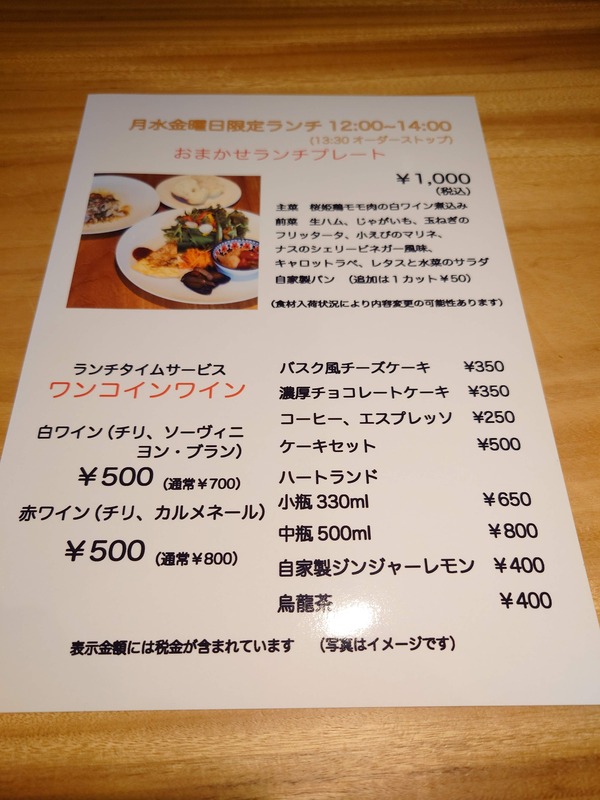 月水金曜日限定ランチ 12:00~14:00
(13:30 オーダーストップ)
おまかせランチプレート
¥1,000
(税込)
主菜　桜姫鶏モモ肉の白ワイン煮込み
前菜　生ハム、じゃがいも、玉ねぎの
フリッタータ、小えびのマリネ、
ナスのシェリービネガー風味、
キャロットラペ、レタスと水菜のサラダ
自家製パン　(追加は1カット¥50)
(食材入荷状況により内容変更の可能性あります)
ランチタイムサービス
ワンコインワイン
白ワイン(チリ、ソーヴィニ
ヨン・ブラン)
¥500 (通常¥700)
赤ワイン(チリ、カルメネール)
¥500 (通常¥800)
バスク風チーズケーキ ¥350
濃厚チョコレートケーキ ¥350
コーヒー、エスプレッソ ¥250
ケーキセット ¥500
ハートランド
小瓶 330ml ¥650
中瓶 500ml ¥800
自家製ジンジャーレモン ¥400
烏龍茶 ¥400
表示金額には税金が含まれています　(写真はイメージです)